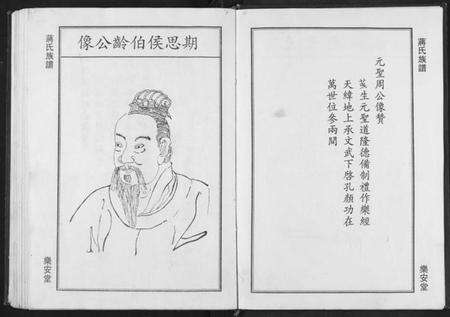 蔣氏族譜
元聖周公像贊
芝生元聖道隆德備制禮作樂經
天緯地上承文武下啓孔顏功在
萬世位參兩間
樂安堂
期思侯伯齡公像
蔣氏族譜
樂安堂